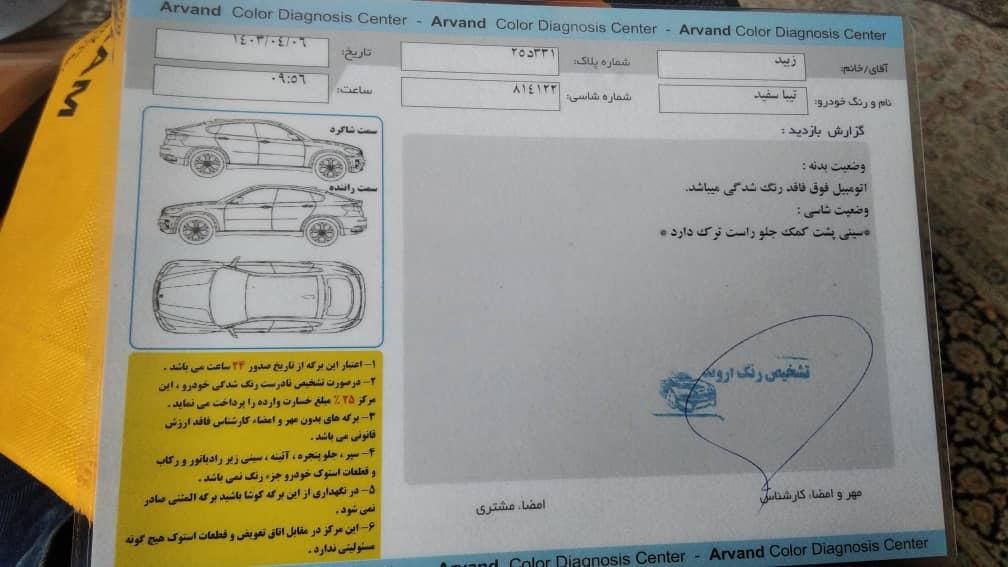 Arvand Color Diagnosis Center - Arvand Color Diagnosis Center - Arvand Color Diagnosis Center
آقای/خانم: زبید
شماره پلاک: ۳۳۱د۲۵
تاریخ: ۱٤۰۳/۰٤/۰٦
نام و رنگ خودرو: تیبا سفید
شماره شاسی: ۸۱٤۱۲۲
ساعت: ۰۹:٥٦
گزارش بازدید :
وضعیت بدنه :
اتومبیل فوق فاقد رنگ شدگی میباشد.
وضعیت شاسی :
*سینی پشت کمک جلو راست ترک دارد *
سمت شاگرد
سمت راننده
۱- اعتبار این برگه از تاریخ صدور ۲۴ ساعت می باشد .
۲- درصورت تشخیص نادرست رنگ شدگی خودرو ، این
مرکز ۲۵ ٪ مبلغ خسارت وارده را پرداخت می نماید .
۳- برگه های بدون مهر و امضاء کارشناس فاقد ارزش
قانونی می باشد .
۴- سپر ، جلو پنجره ، آئینه ، سینی زیر رادیاتور و رکاب
و قطعات استوک خودرو جزء رنگ نمی باشد .
۵- در نگهداری از این برگه کوشا باشید برگه المثنی صادر
نمی شود .
۶- این مرکز در مقابل اتاق تعویض و قطعات استوک هیچ گونه
مسئولیتی ندارد .
تشخیص رنگ اروند
مهر و امضاء کارشناس
امضاء مشتری
Arvand Color Diagnosis Center - Arvand Color Diagnosis Center